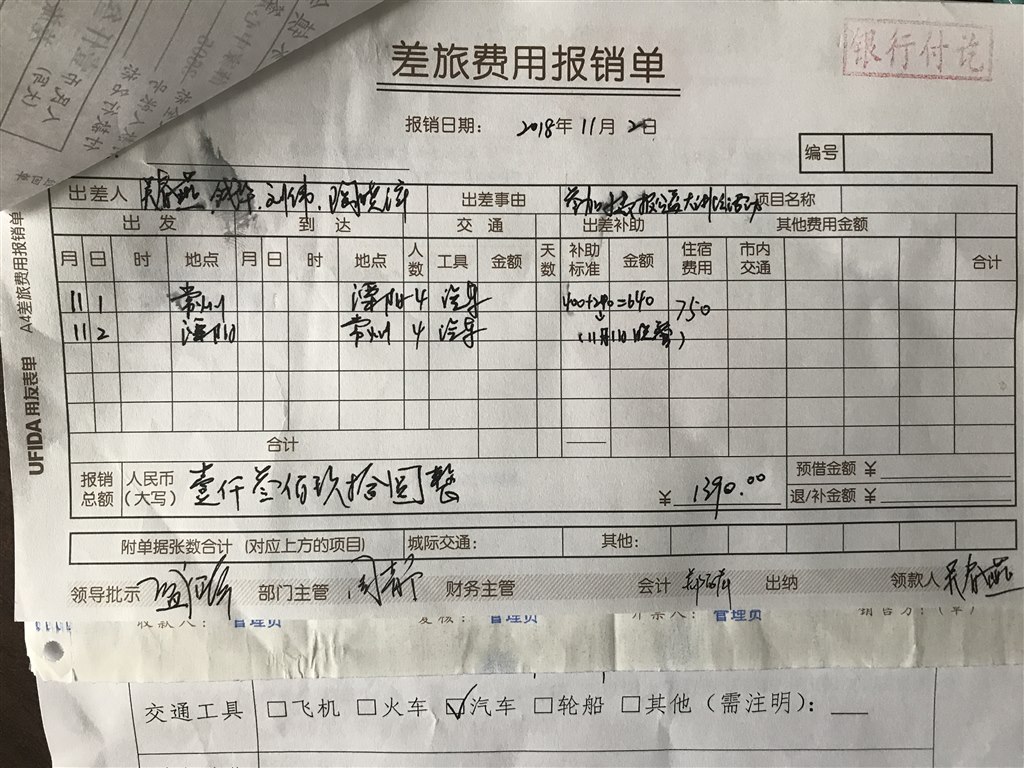 差旅费用报销单
银行付讫
报销日期： 2018年11月2日
编号
出差人 吴春燕 钱华 刘伟 出差事由 参加 项目名称
出发 到达 交通 出差补助 其他费用金额
月 日 时 地点 月 日 时 地点 人数 工具 金额 天数 补助标准 金额 住宿费用 市内交通 合计
11 1 常州 溧阳 4 汽车 400+240=640 750
11 2 溧阳 常州 4 汽车 (11月1日晚餐)
合计
报销总额 人民币(大写) 壹仟叁佰玖拾圆整 ￥1390.00
预借金额 ￥
退/补金额 ￥
附单据张数合计 (对应上方的项目) 城际交通： 其他：
领导批示 部门主管 周静 财务主管 会计 出纳 领款人 吴春燕
A4差旅费用报销单
UFIDA 用友表单
收款人： 管理员 复核： 管理员 开票人： 管理员 销售方：(章)
交通工具 □飞机 □火车 ☑汽车 □轮船 □其他（需注明）：